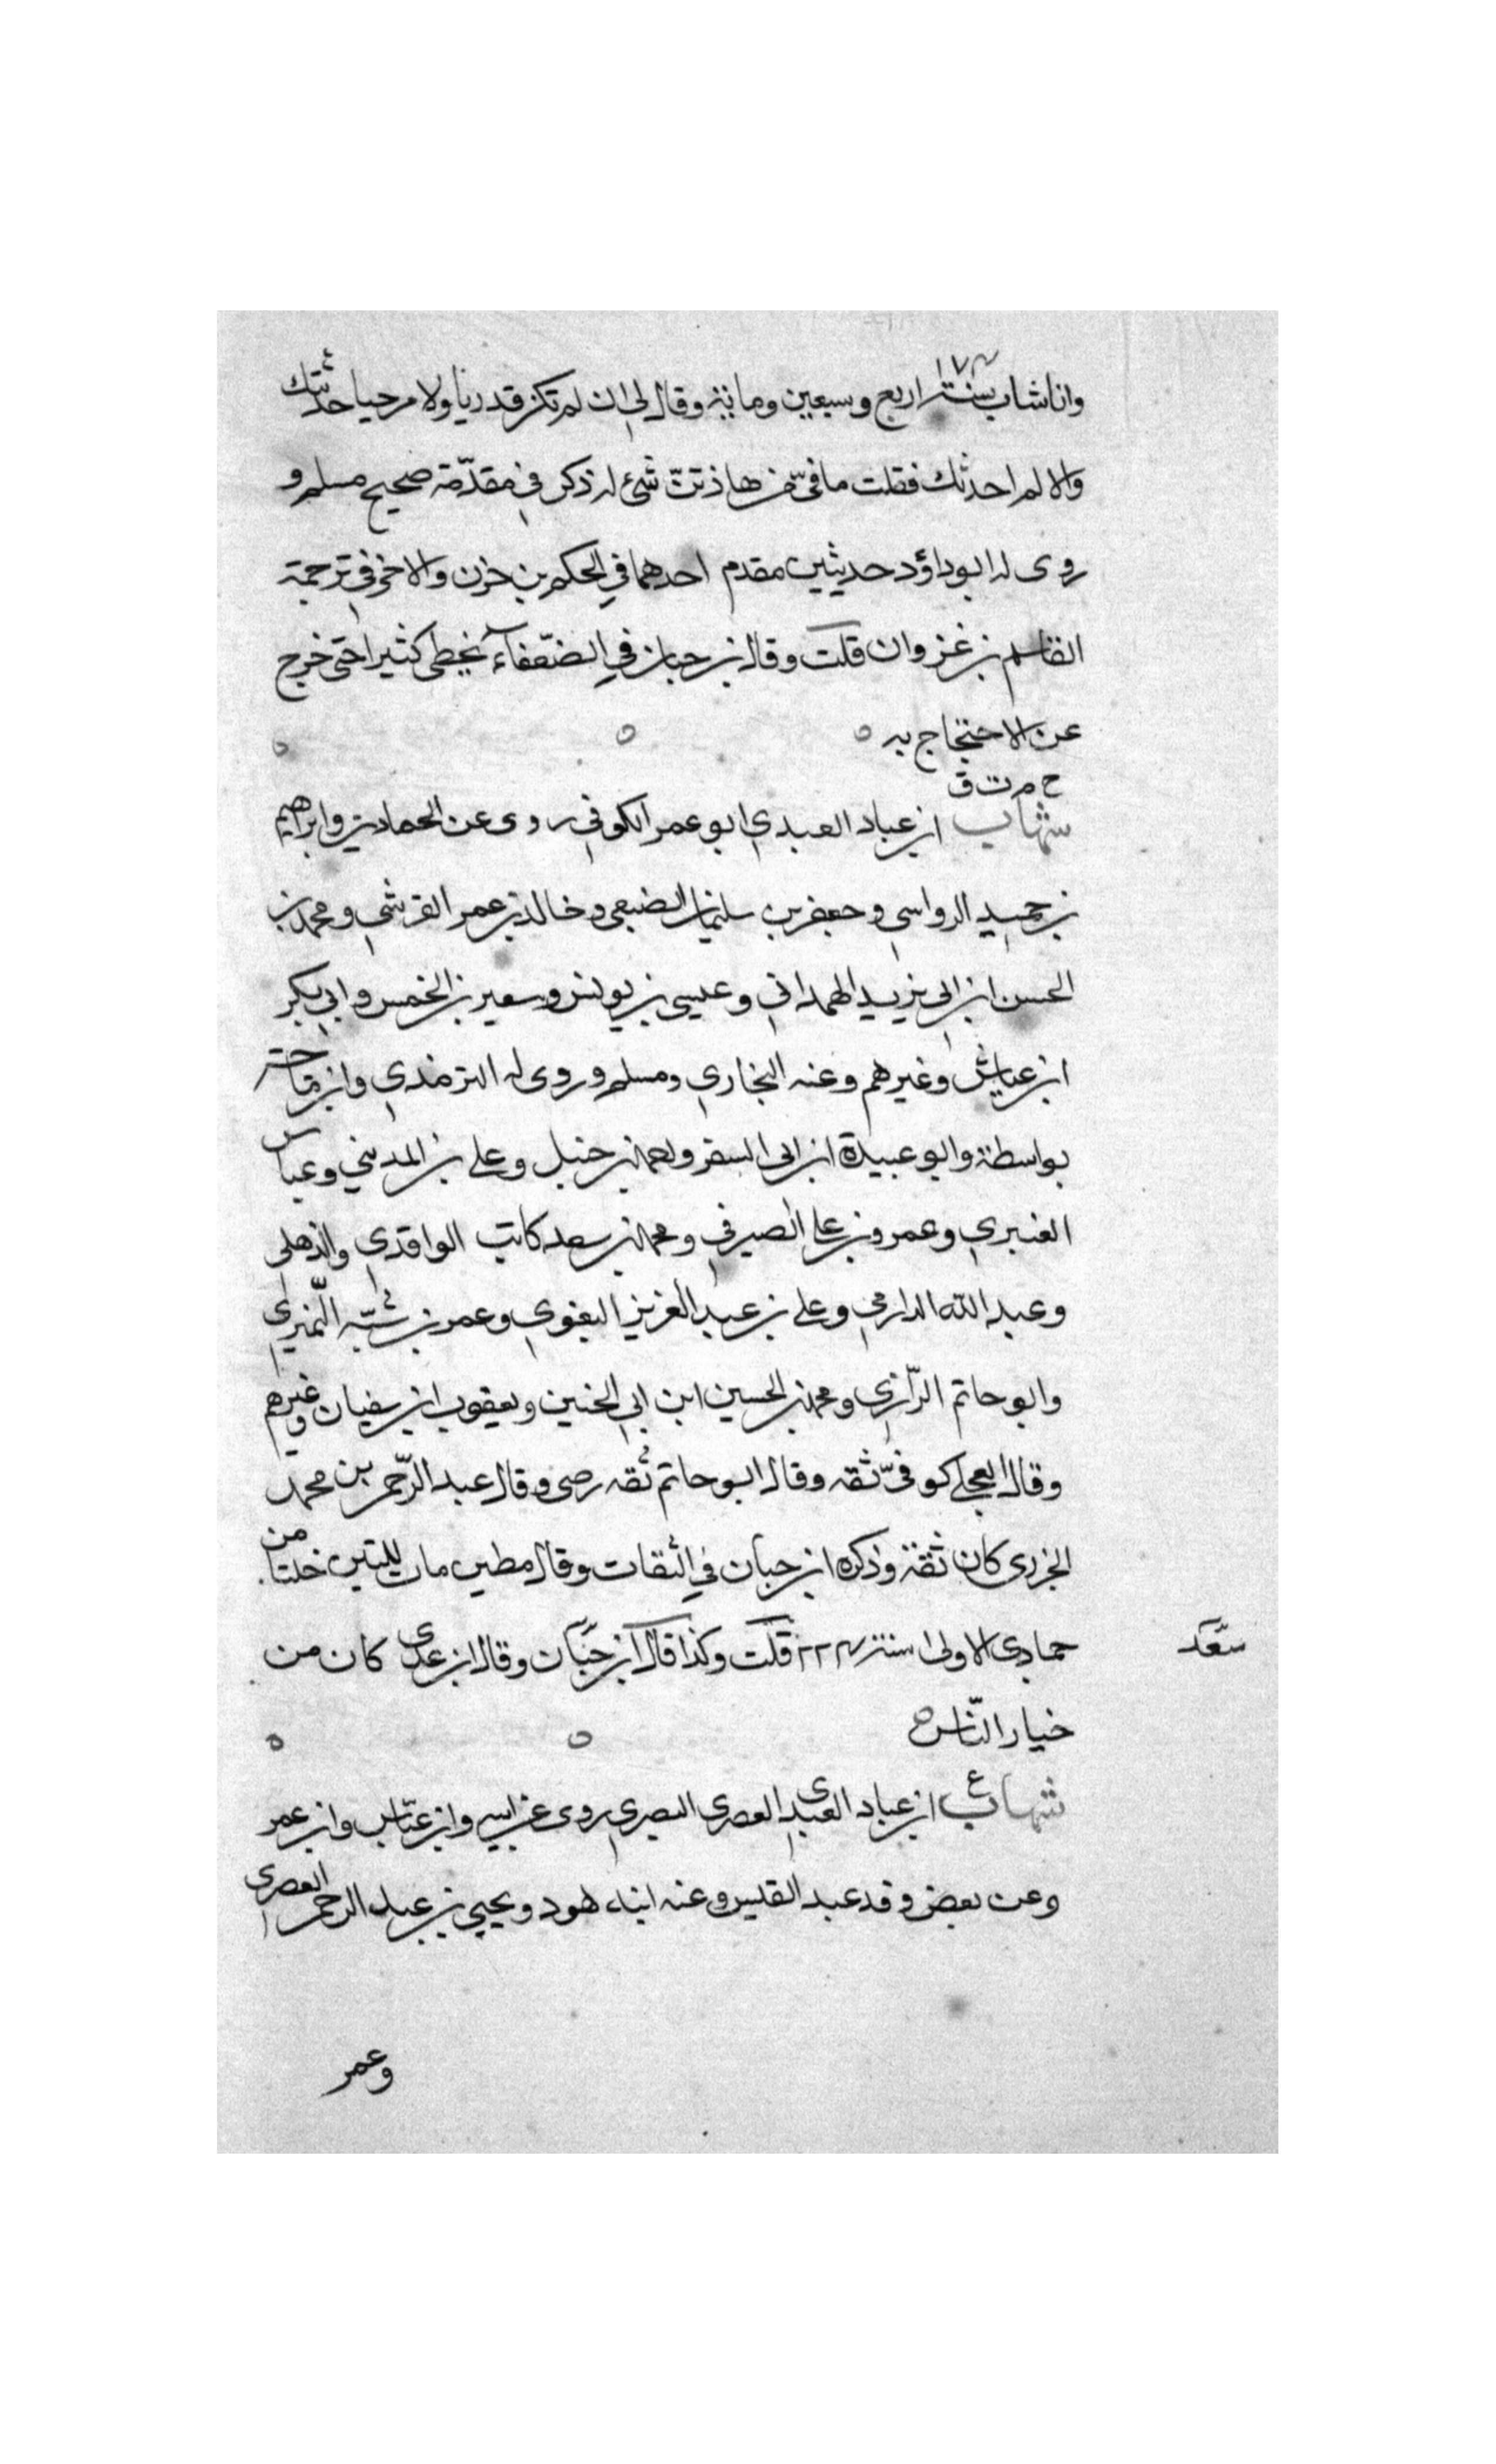 ١٧٤
وانا شاب سنة اربع وسبعين ومائة وقال لي ان لم تكن قدريا ولا مرجيا حدثتك
والا لم احدثك فقلت ما فيّ من هاذين شئ له ذكر في مقدّمة صحيح مسلم و
روى له ابو داؤد حديثين مقدم احدهما في الحكم بن حزن والاخر في ترجمة
القاسم بن غزوان قلت وقال بن حبان في الضّعفآء يخطى كثيرا حتى خرج
عن الاحتجاج به
خ م ت ق
شهاب ابن عباد العبدي ابو عمر الكوفي روى عن الحمادين وابراهيم
بن حميد الرواسي وجعفر بن سليمان الضبعي وخالد بن عمر القرشي ومحمد بن
الحسن ابن ابي يزيد الهمداني وعيسى بن يونس وسعير بن الخمس وابي بكر
ابن عياش وغيرهم وعنه البخاري ومسلم وروى له الترمذي وابن ماجة
بواسطة وابو عبيدة ابن ابي السفر واحمد بن حنبل وعلي بن المديني وعباس
العنبري وعمرو بن علي الصيرفي ومحمد بن سعد كاتب الواقدي والذهلي
وعبد الله الدارمي وعلي بن عبد العزيز البغوي وعمر بن شبّه النّميري
وابو حاتم الرّازي ومحمد بن الحسين ابن ابي الحنين ويعقوب ابن سفيان وغيرهم
وقال العجلي كوفيّ ثقه وقال ابو حاتم ثقه رضى وقال عبد الرّحمن بن محمد
الجزرى كان ثقة وذكره ابن حبان في الثقات وقال مطين مات لليلتين خلتا من
جمادي الاولى سنة ٢٢٤ قلت وكذا قال ابن حبّان وقال ابن عدى كان من
سعد
خيار النّاس
ع
شهاب ابن عباد العبدى العصرى البصري روى عن ابيه وابن عبّاس وابن عمر
وعن بعض وفد عبد القيس وعنه ابناه هود ويحيى بن عبد الرحمن العصرى
وعمر